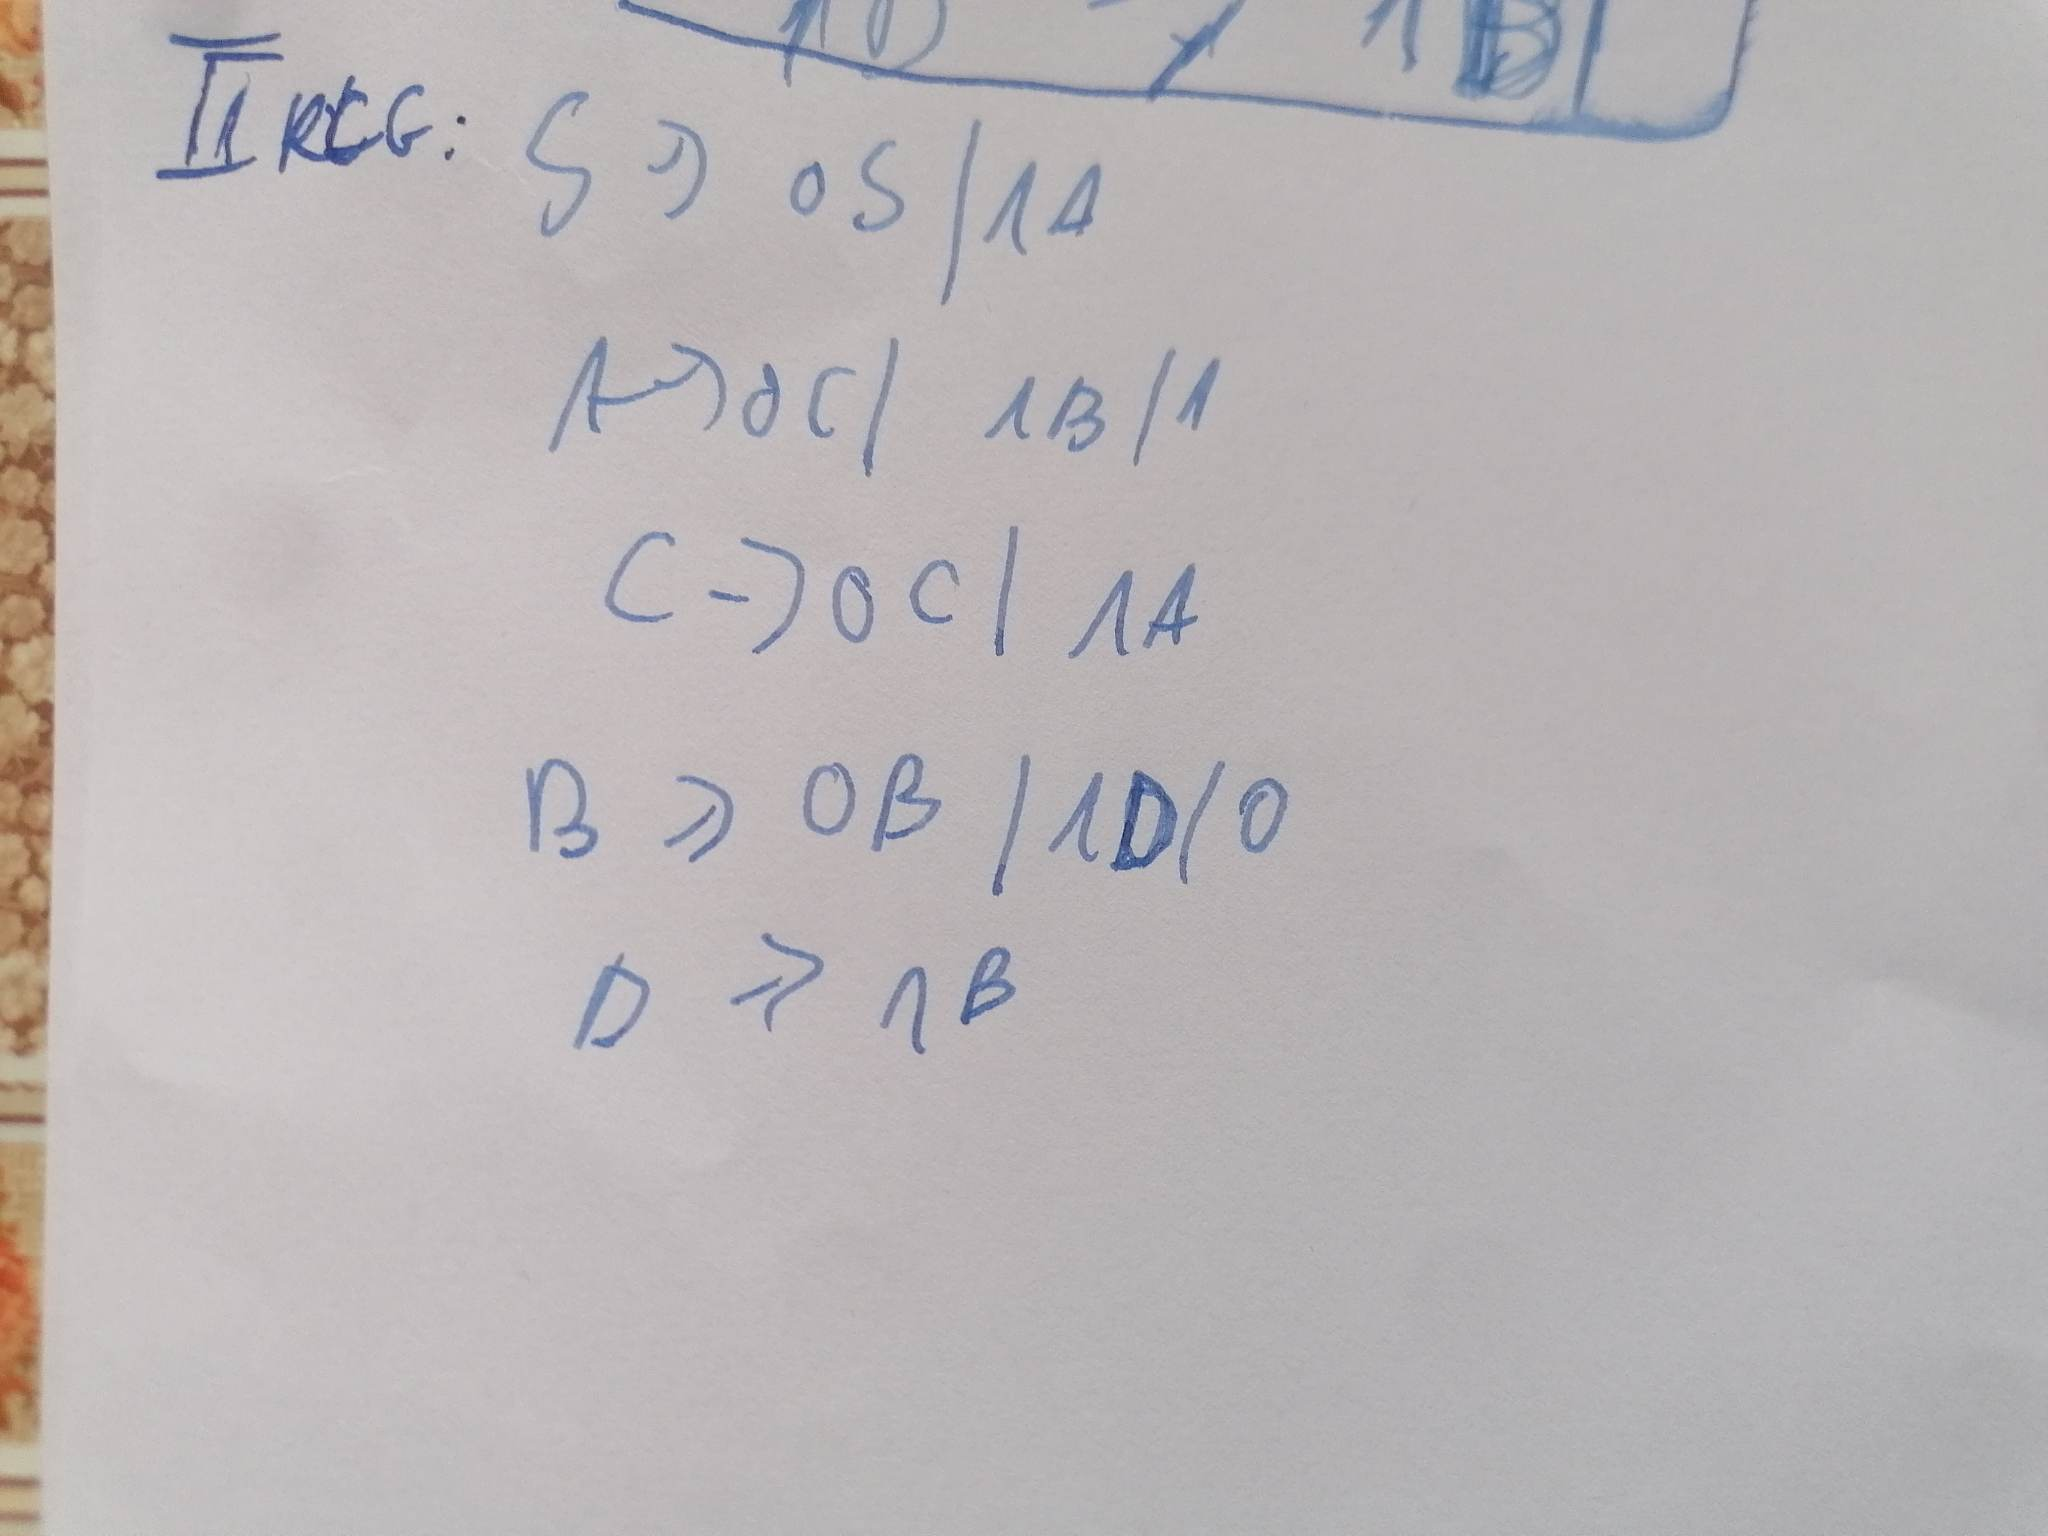 II RLG: S → 0S / 1A
A → 0C / 1B / 1
C → 0C / 1A
B → 0B / 1D / 0
D → 1B